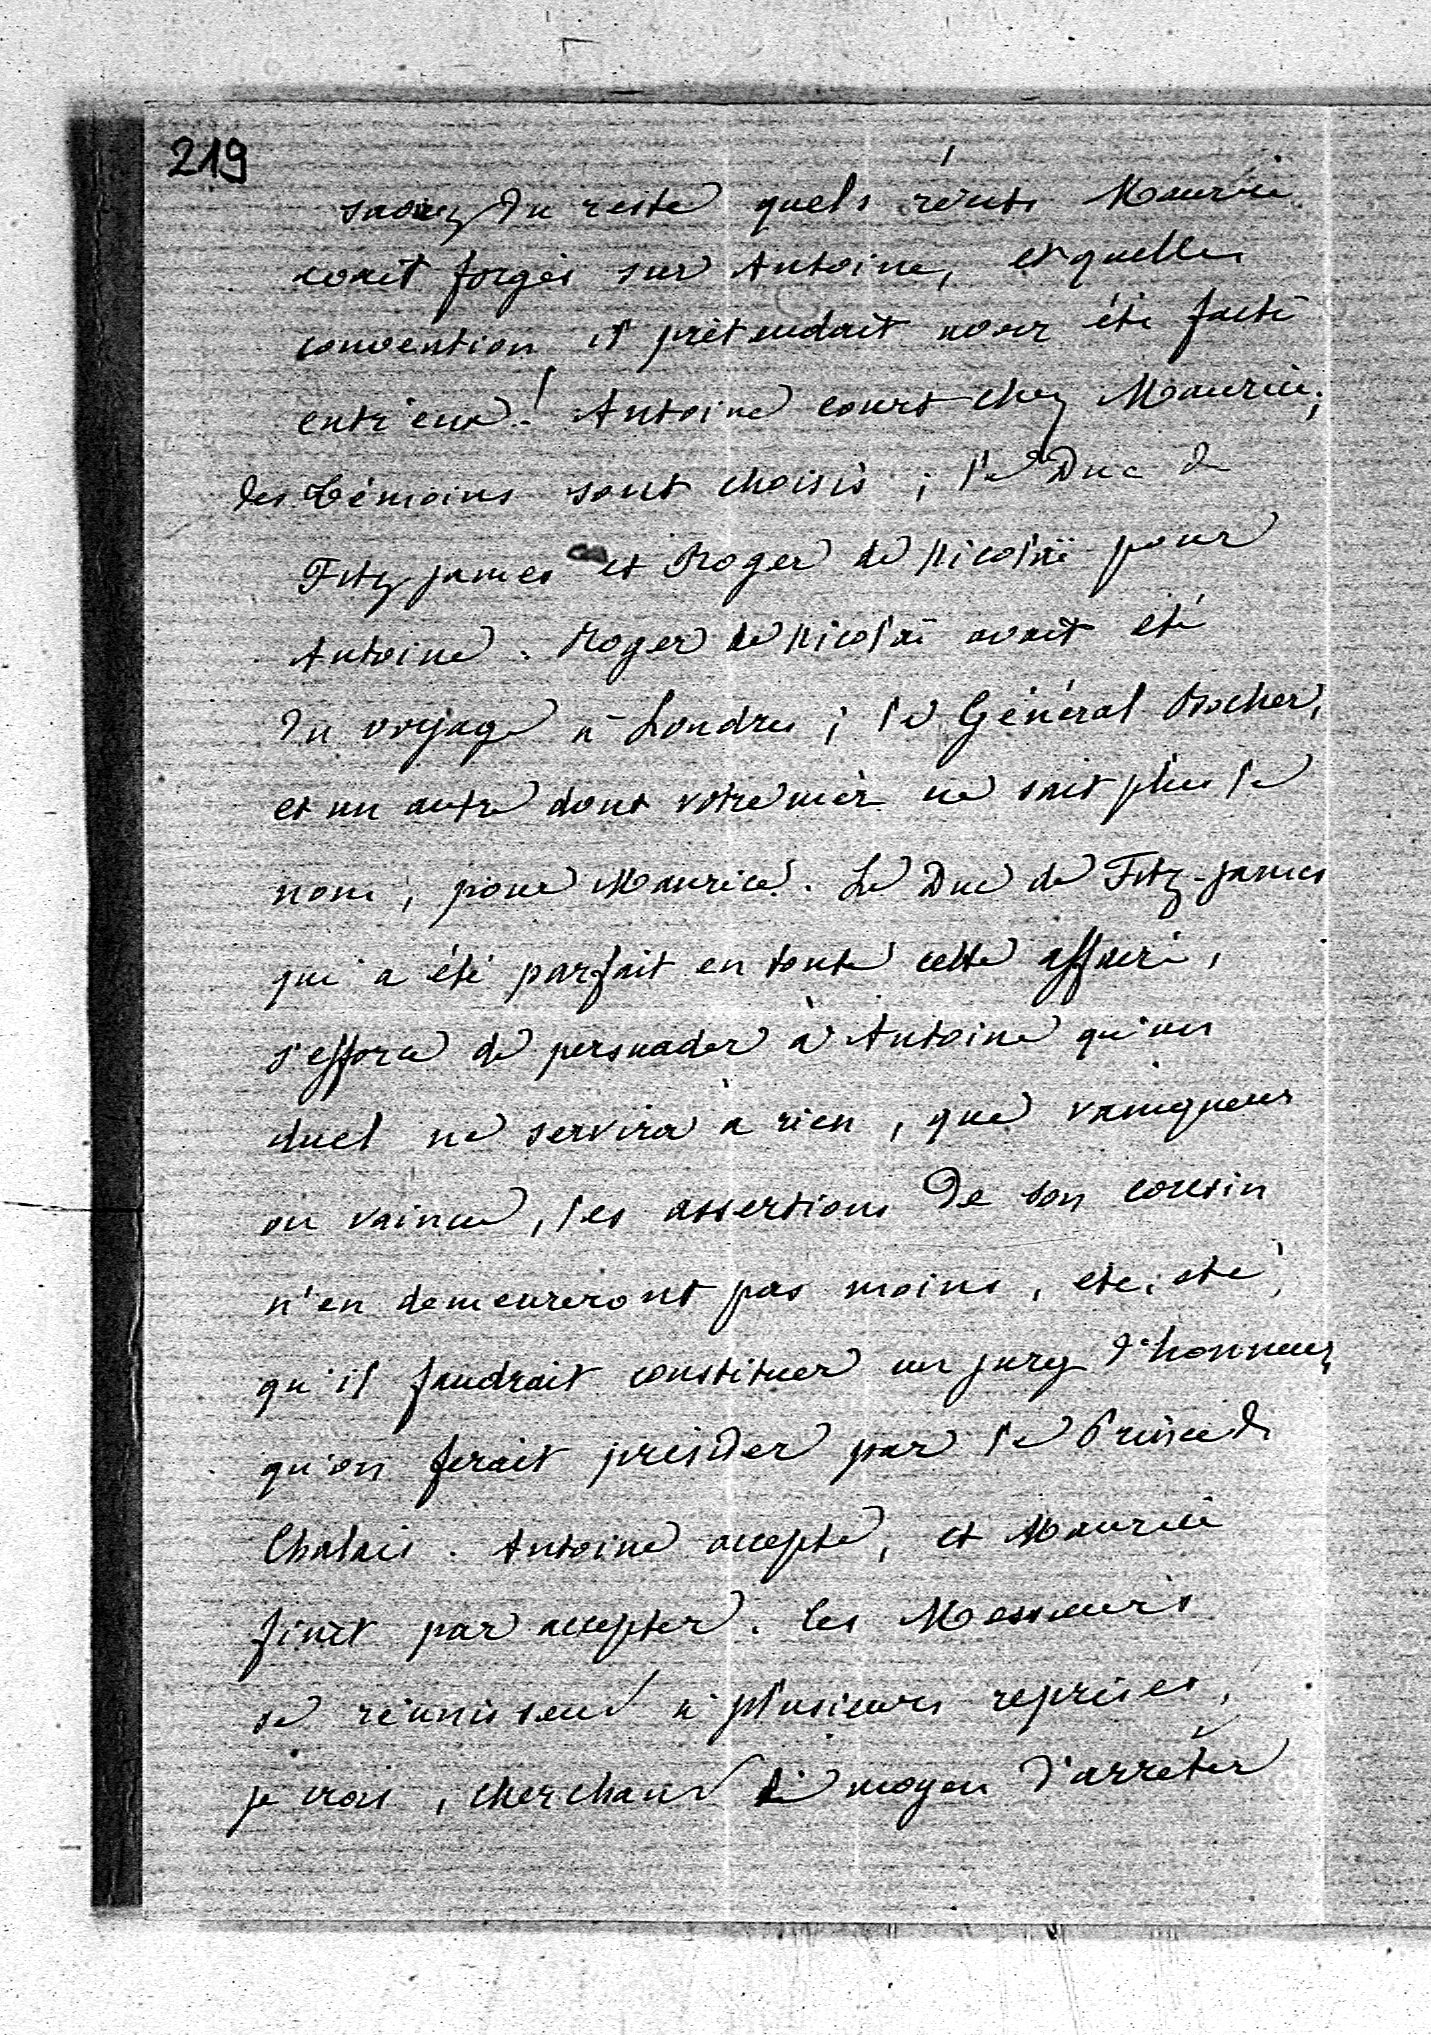 219
savez du reste quels récits Maurice
avait forgés sur Antoine, et quelle
convention il prétendait avoir été faite
entr'eux! Antoine court chez Maurice;
des témoins sont choisis; le Duc de
Fitz james et Roger de Nicolaï pour
Antoine. Roger de Nicolaï avait été
du voyage à Londres; le Général
et un autre dont votre mère ne sait plus le
nom, pour Maurice. Le Duc de Fitz-james
qui a été parfait en toute cette affaire,
s'efforce de persuader à Antoine qu'un
duel ne servira à rien, que vainqueur
ou vaincu, les assertions de son cousin
n'en demeureront pas moins, etc, etc,
qu'il faudrait constituer un jury d'honneur
qu'on ferait présider par le Prince de
Chalais. Antoine accepte, et Maurice
finit par accepter. Ces Messieurs
se réunissent à plusieurs reprises,
je crois, cherchant le moyen d'arrêter